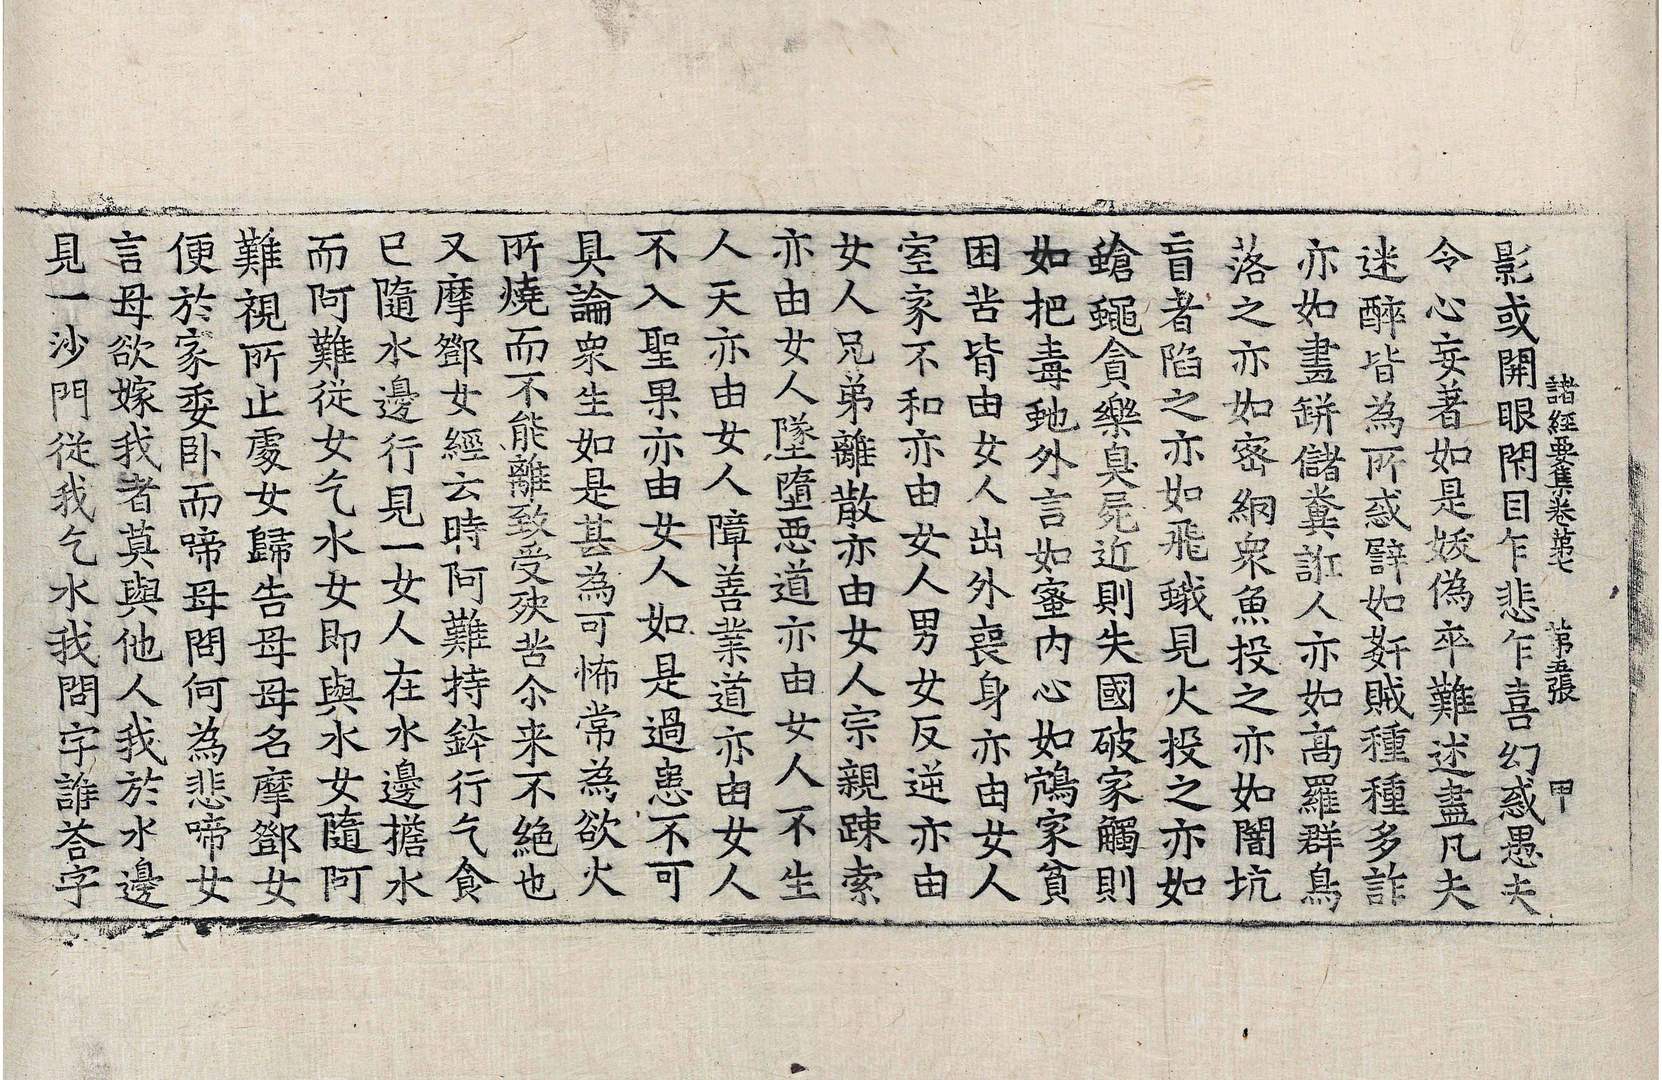 諸經要集卷第七 第五張 甲
影或開眼閇目乍悲乍喜幻惑愚夫
令心妄著如是妖偽卒難述盡凡夫
迷醉皆為所惑譬如姧賊種種多詐
亦如畫缾儲糞誑人亦如高羅群鳥
落之亦如密網衆魚投之亦如闇坑
盲者陷之亦如飛蛾見火投之亦如
蒼蠅貪樂臭屍近則失國破家觸則
如把毒虵外言如蜜內心如鴆家貧
困苦皆由女人出外喪身亦由女人
室家不和亦由女人男女反逆亦由
女人兄弟離散亦由女人宗親踈索
亦由女人墜墮惡道亦由女人不生
人天亦由女人障善業道亦由女人
不入聖果亦由女人如是過患不可
具論衆生如是甚為可怖常為欲火
所燒而不能離致受殃苦尒来不絕也
又摩鄧女經云時阿難持鉢行乞食
已隨水邊行見一女人在水邊擔水
而阿難從女乞水女即與水女隨阿
難視所止處女歸告母母名摩鄧女
便於家委卧而啼母問何為悲啼女
言母欲嫁我者莫與他人我於水邊
見一沙門從我乞水我問字誰荅字